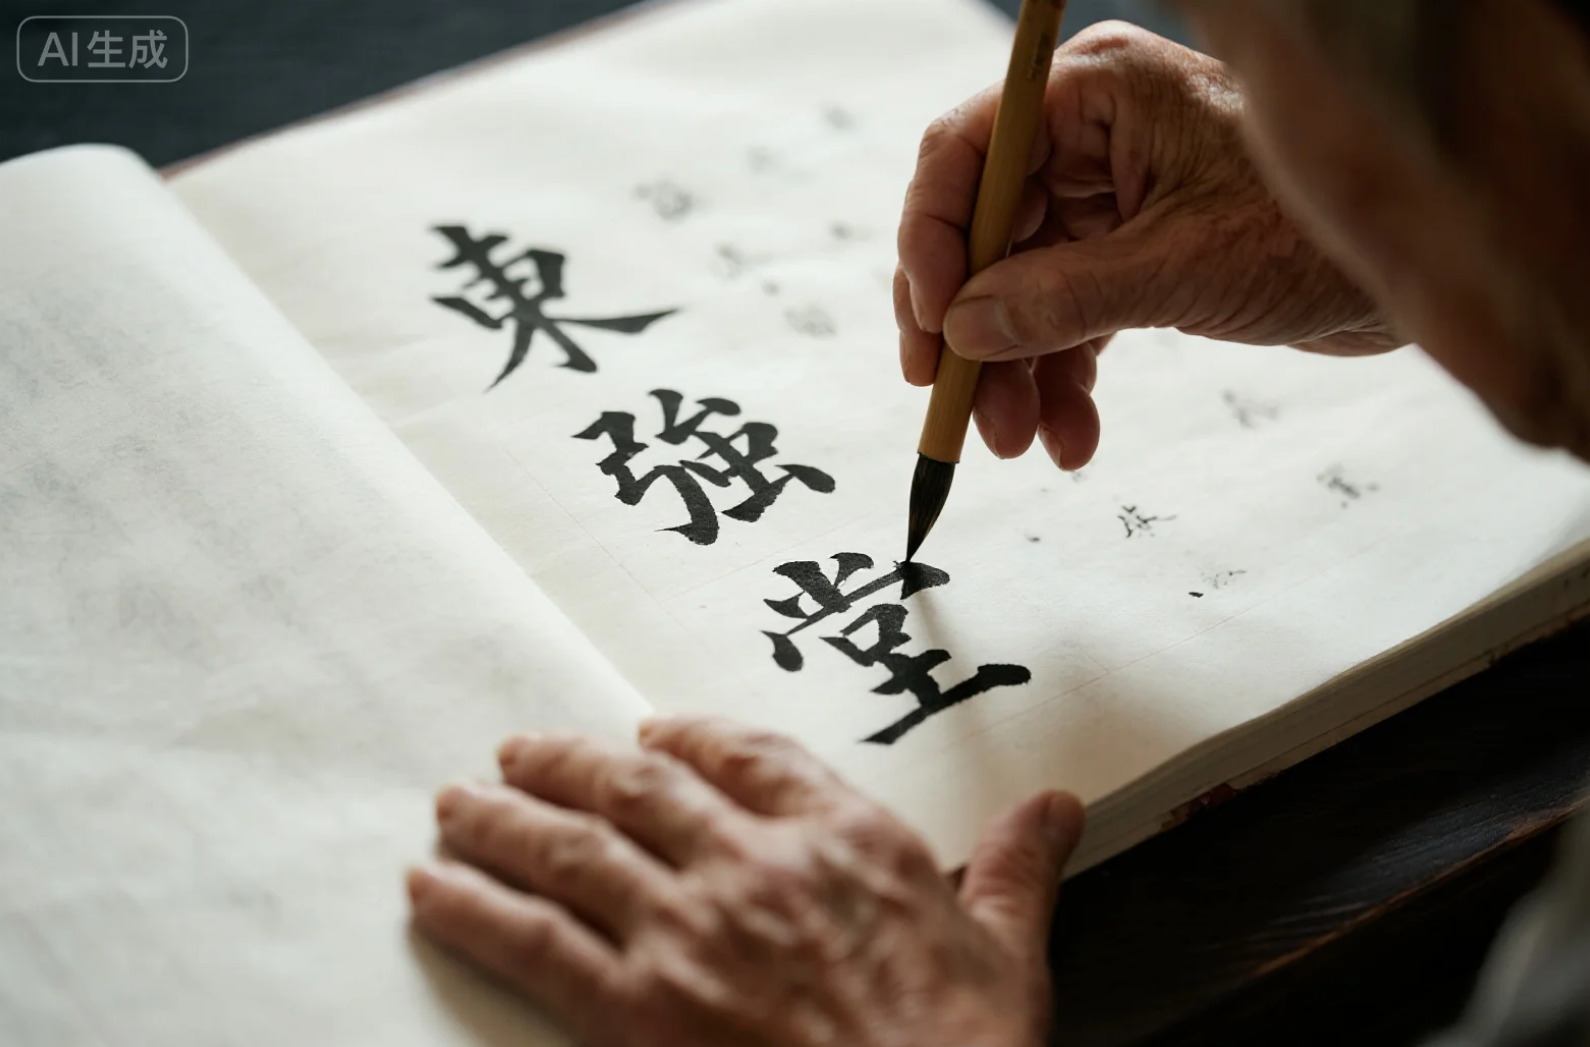 AI生成
東
強
堂